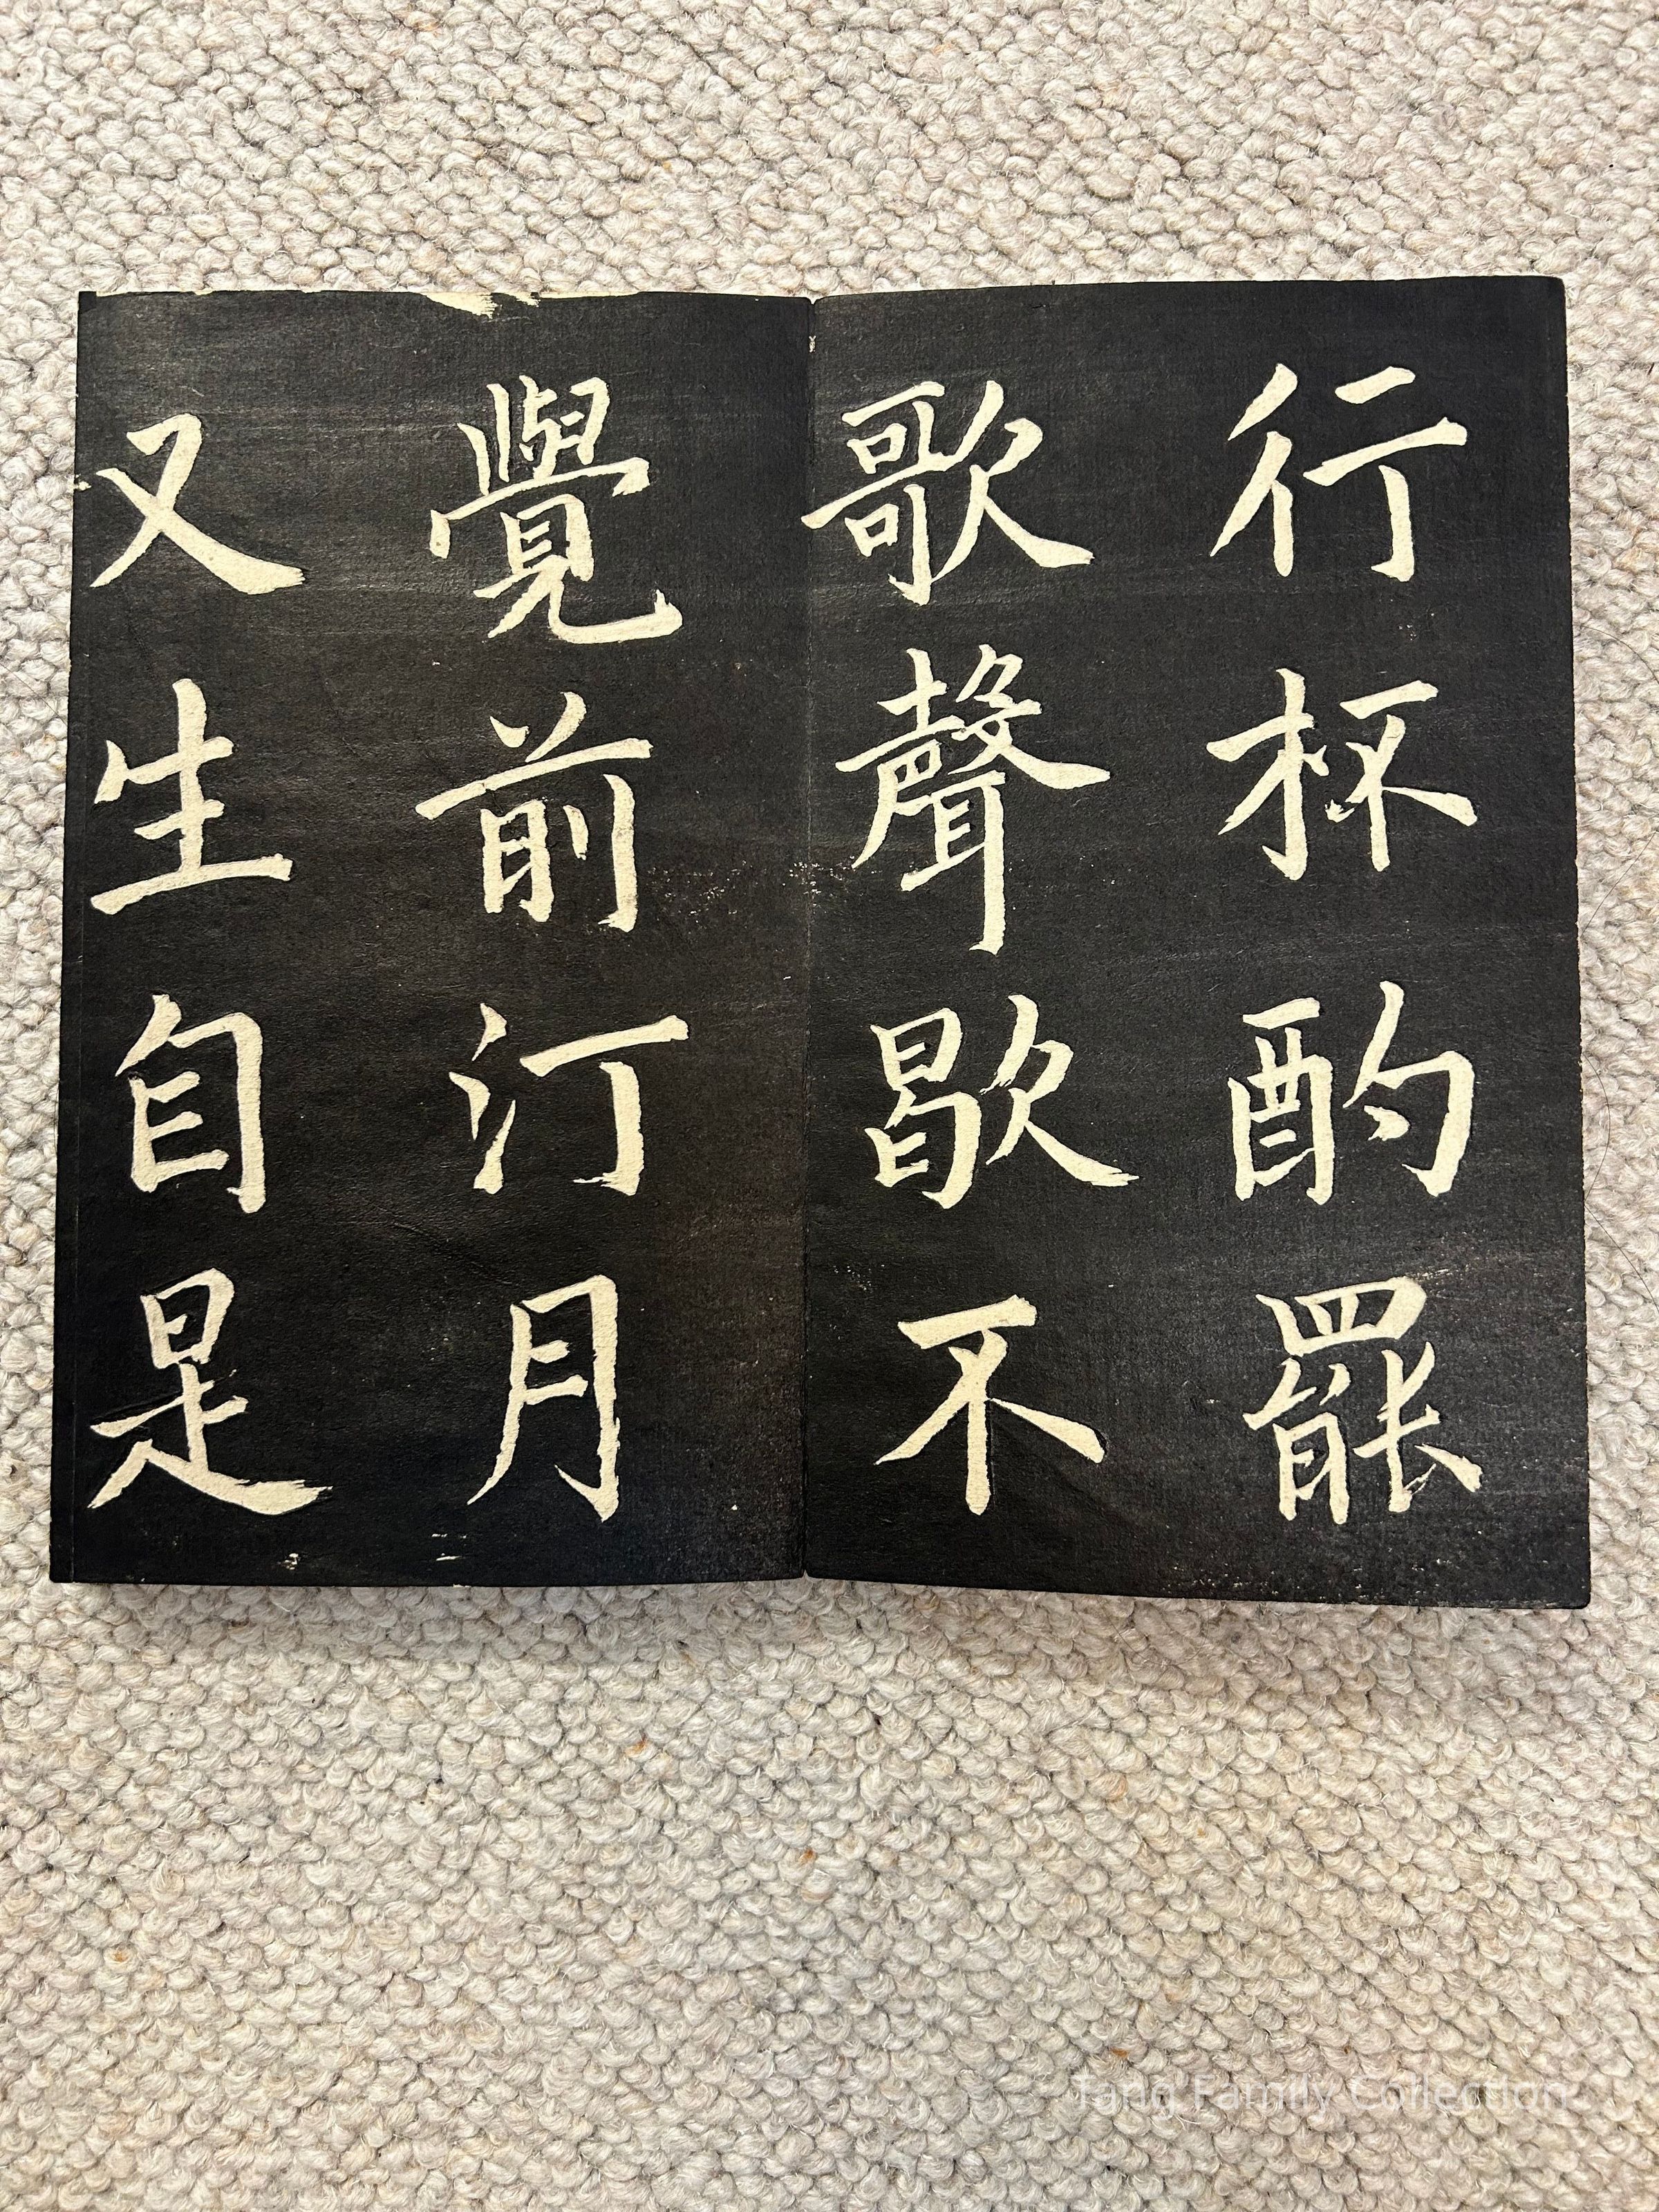 行杯酌罷
歌聲歇不
覺前汀月
又生自是
Tang Family Collection